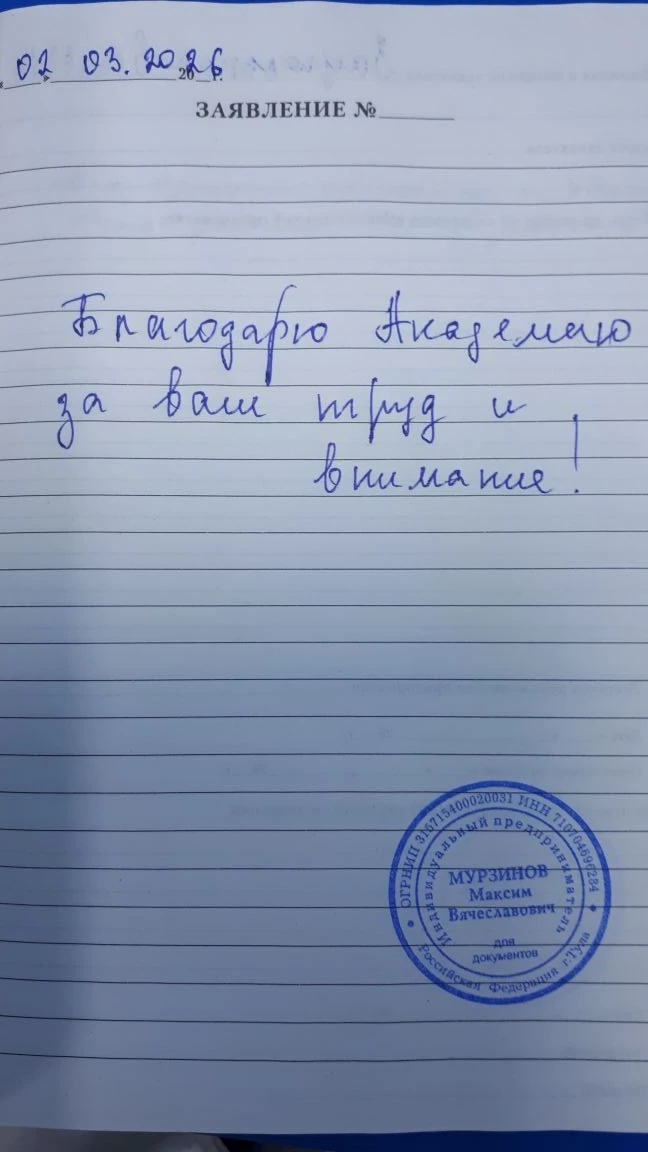 02 03. 2026 20 г.
ЗАЯВЛЕНИЕ №
Благодарю Академию
за ваш труд и
внимание!
ОГРНИП 315715400020031 ИНН 710704696284
Индивидуальный предприниматель
МУРЗИНОВ
Максим
Вячеславович
для
документов
Российская Федерация г.Тула